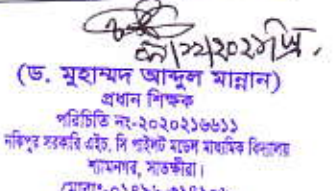 (ড. মুহাম্মদ আব্দুল মান্নান)
প্রধান শিক্ষক
পরিচিতি নং-২০২০২১৬৬১১
নকিপুর সরকারি এইচ. সি পাইলট মডেল মাধ্যমিক বিদ্যালয়
শ্যামনগর, সাতক্ষীরা।